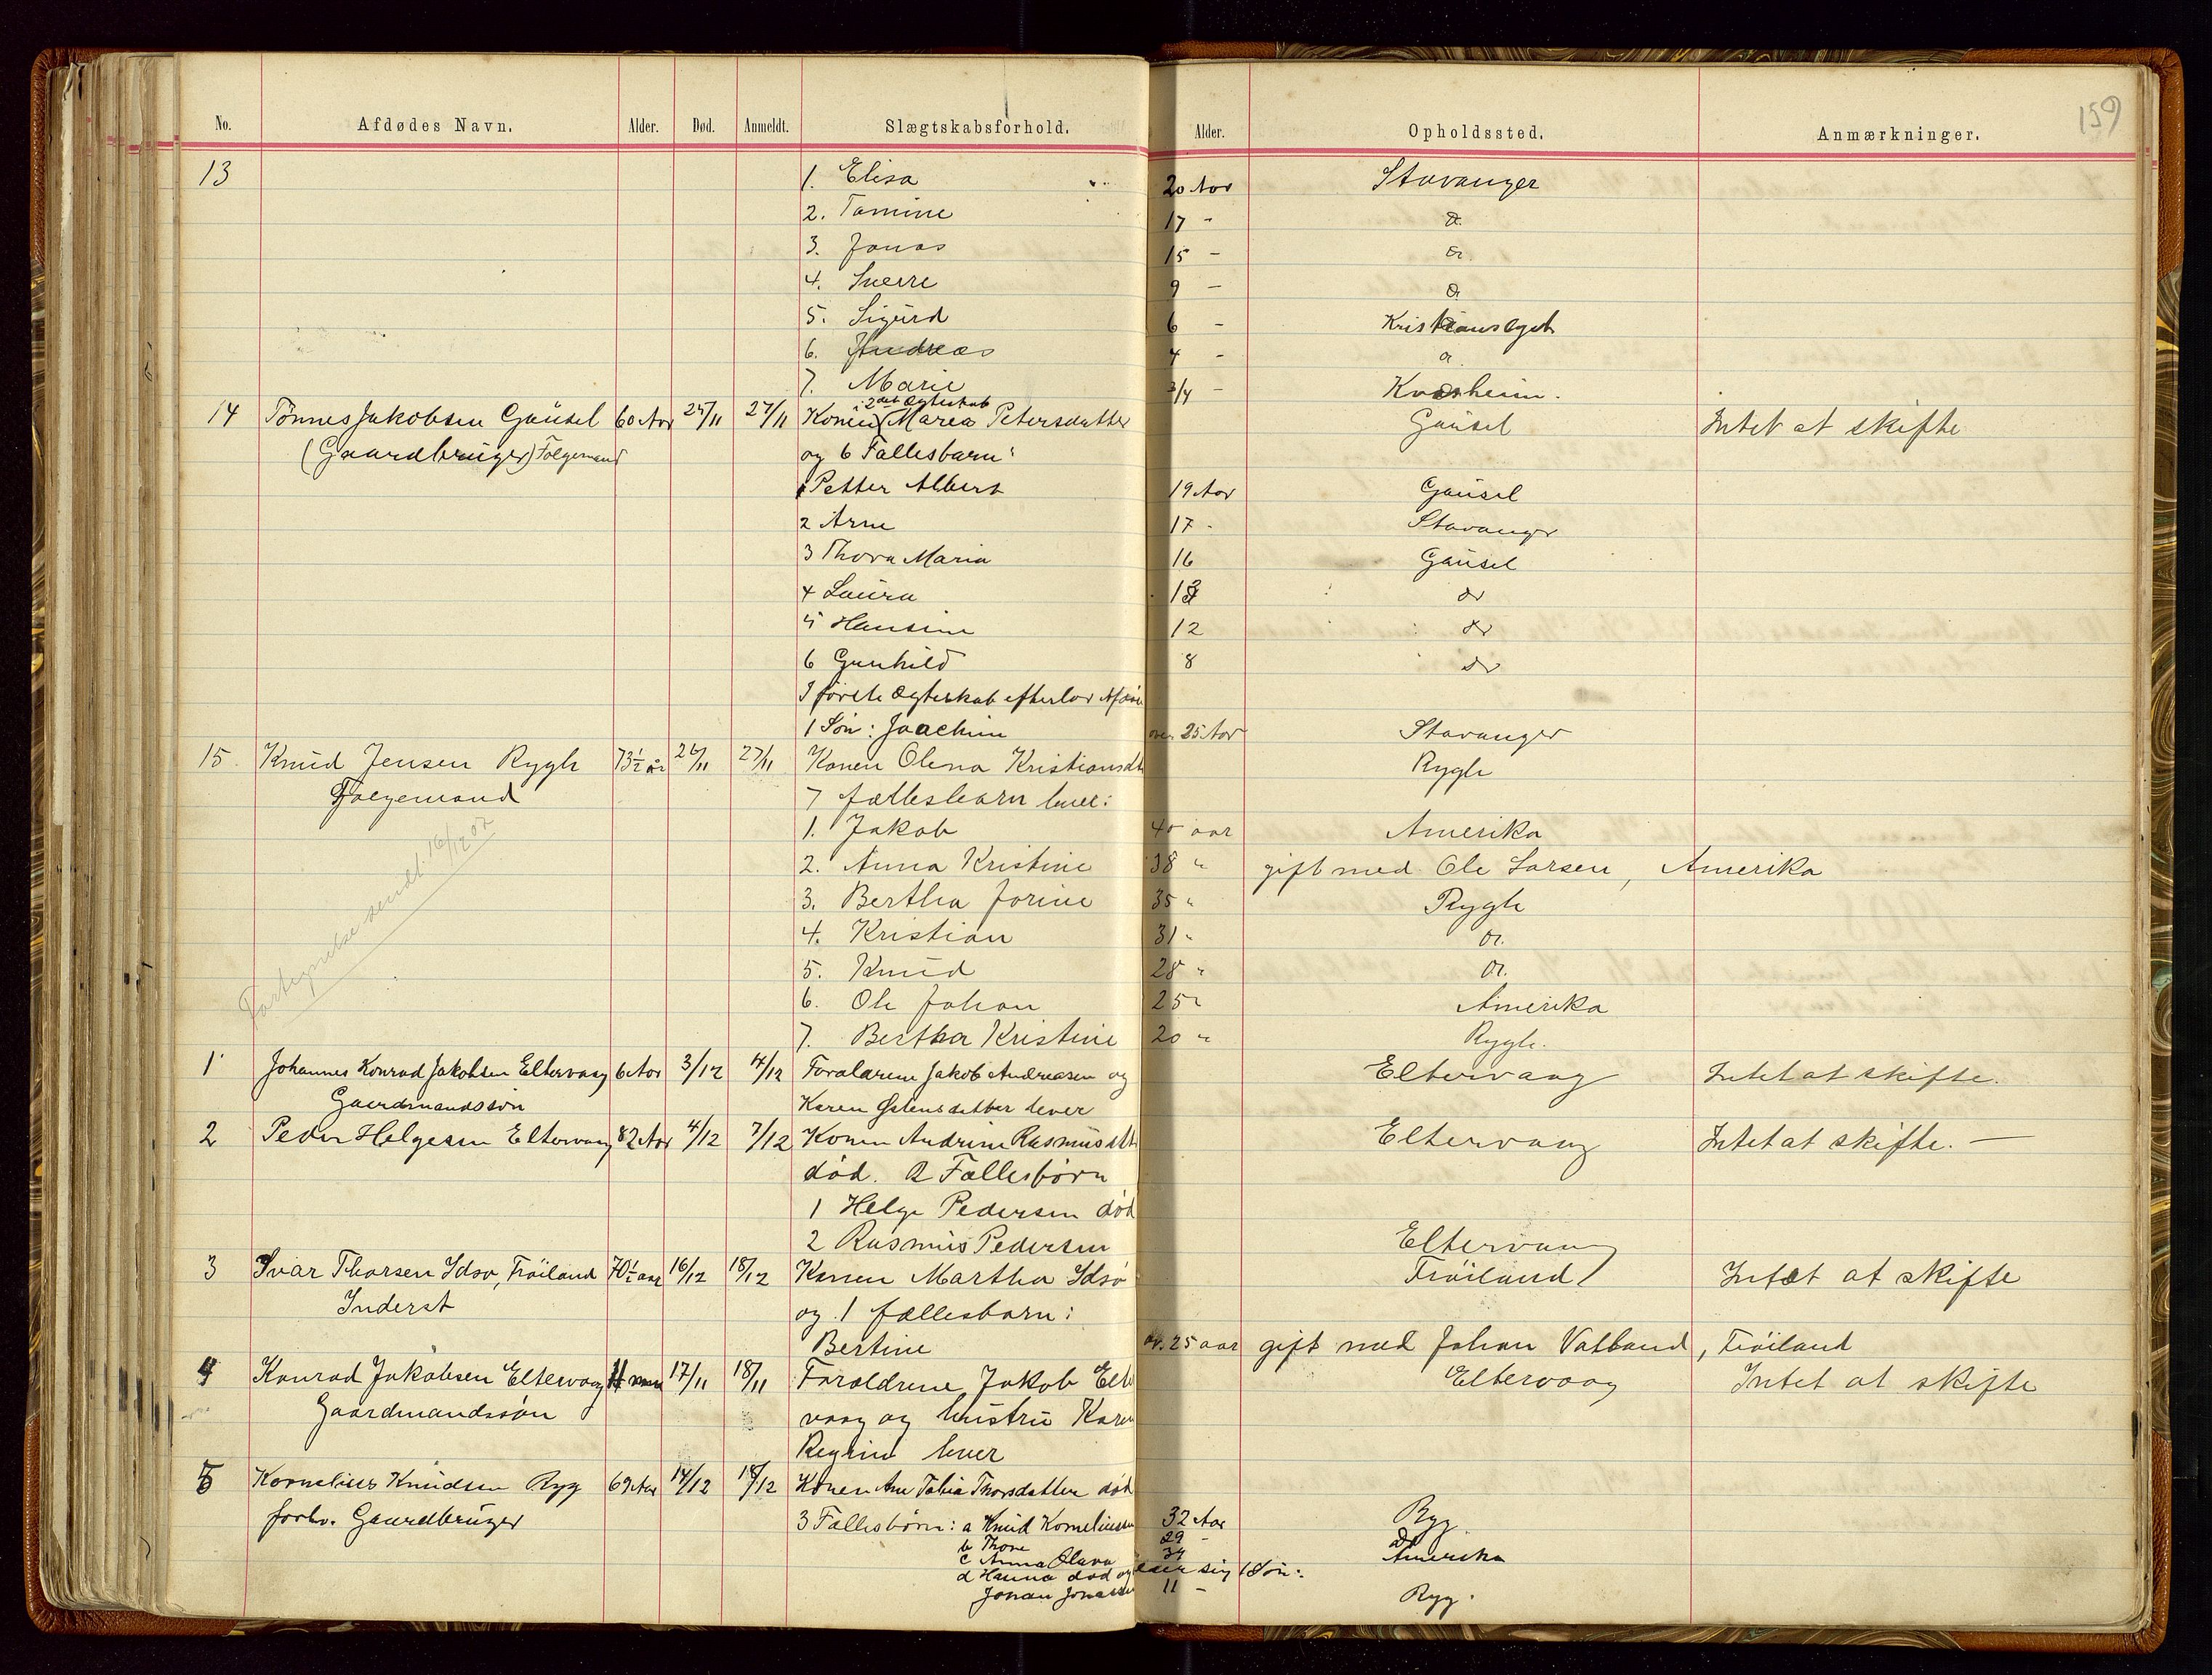 159
No. Afdødes Navn. Alder. Død. Anmeldt. Slægtskabsforhold. Alder. Opholdssted. Anmærkninger.
13 1. Elisa 20 Aar Stavanger
2. Tomine 17 - do
3. Jonas 15 - do
4. Sverre 9 - do
5. Sigurd 6 - Kristianslyst
6. Andreas 4 - do
7. Marie 3/4 - Kvasheim.
i 2det Ægteskab
14 Tönnes Jakobsen Gausel 60 Aar 25/11 27/11 Konen Maren Petersdatter Gausel Intet at skifte
(Gaardbruger) Folgemand og 6 Fallesbarn:
1 Petter Albert 19 Aar Gausel
2 Arne 17 - Stavanger
3 Thora Maria 16 Gausel
4 Laura 13 do
5 Hansine 12 do
6 Gunhild 8 do
I förste Ægteskab efterlod Afdøde
1 Sön: Joachim over 25 Aar Stavanger
15. Knud Jensen Rygh 73½ år 26/11 27/11 Konen Olena Kristiansdtr Rygh
Folgemand 7 fællesbarn lever:
1. Jakob 40 aar Amerika
2. Anna Kristine 38 " gift med Ole Larsen, Amerika
3. Bertha Jorine 35 " Rygh
4. Kristian 31 " do.
5. Knud 28 " do.
6. Ole Johan 25 " Amerika
7. Bertha Kristine 20 " Rygh.
sendt 16/12 02
1 Johannes Konrad Jakobsen Eltervaag 6 Aar 3/12 4/12 Foraldrene Jakob Andreasen og Eltervaag Intet at skifte.
Gaardmandssön Karen Østensdatter lever
2 Peder Helgesen Eltervaag 82 Aar 4/12 7/12 Konen Andrine Rasmusdtr Eltervaag Intet at skifte. —
död. 2 Fallesbörn
1 Helge Pedersen död
2 Rasmus Pedersen Eltervaag
3 Ivar Thorsen Idsö, Tröiland 70½ aar 16/12 18/12 Konen Martha Idsö Tröiland Intet at skifte
Inderst og 1 fællesbarn:
Bertine ov. 25 aar gift med Johan Vatland, Tröiland
4 Konrad Jakobsen Eltervaag 17/11 18/11 Foraldrene Jakob Elter Eltervaag Intet at skifte
Gaardmandssön vaag og hustru Karen
Regine lever
5 Kornelius Knudsen Ryg 69 Aar 14/12 18/12 Konen Ane Tobia Thorsdatter död
forhv. Gaardbruger 3 Fallesbörn: a Knud Korneliussen 32 Aar Ryg
b Thore 29 - do
c Anna Olava 34 Amerika
d Hanna död og efter sig 1 Sön:
Johan Jonassen 11 - Ryg.